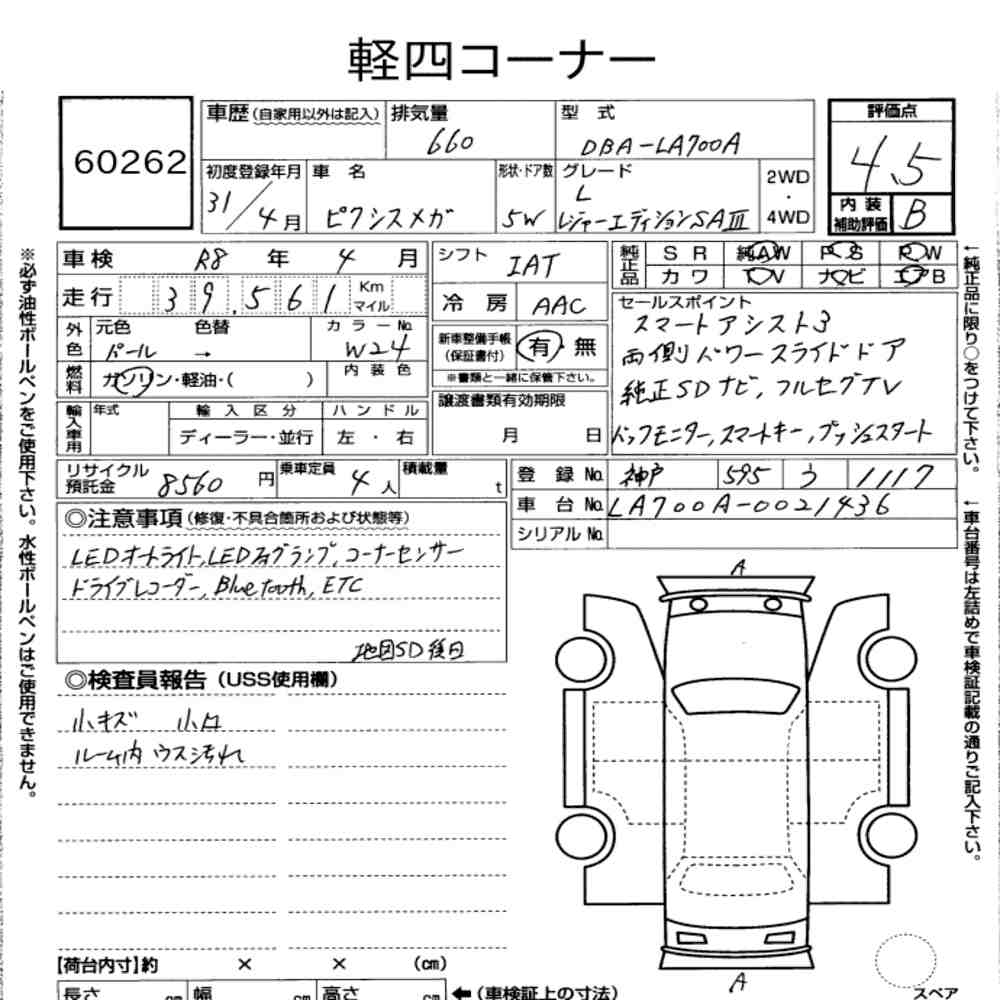 軽四コーナー
60262
車歴(自家用以外は記入) 排気量 型式
660 DBA-LA700A
評価点
4.5
内装補助評価 B
初度登録年月 車名 形状・ドア数 グレード
31/4月 ピクシスメガ 5W L レジャーエディションSAⅢ
2WD・4WD
車検 R8年 4月
走行 39,561 Km マイル
シフト IAT
冷房 AAC
純正品 SR 純AW PS PW
カワ TV ナビ エアB
外色 元色 色替 カラーNo.
パール → W24
内装色
燃料 ガソリン・軽油・( )
新車整備手帳(保証書付) 有・無
※書類と一緒に保管下さい。
譲渡書類有効期限
月 日
セールスポイント
スマートアシスト3
両側パワースライドドア
純正SDナビ,フルセグTV
バックモニター,スマートキー,プッシュスタート
輸入車用 年式 輸入区分 ハンドル
ディーラー・並行 左・右
リサイクル預託金 8560円 乗車定員 4人 積載量 t
登録No. 神戸 595 う 1117
車台No. LA700A-0021436
シリアルNo.
◎注意事項(修復・不具合箇所および状態等)
LEDオートライト,LEDフォグランプ,コーナーセンサー
ドライブレコーダー,Bluetooth,ETC
地図SD後日
◎検査員報告(USS使用欄)
小キズ 小凹
ルーム内 ウス汚れ
A
A
【荷台内寸】約 × × (cm)
長さ cm 幅 cm 高さ cm ←(車検証上の寸法)
スペア
※必ず油性ボールペンをご使用下さい。水性ボールペンはご使用できません。
←純正品に限り○をつけて下さい。
←車台番号は左詰めで車検証記載の通りご記入下さい。